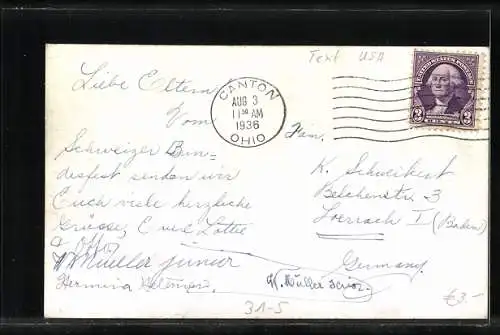 Text USA
UNITED STATES POSTAGE
3
CANTON
AUG 3
11 30 AM
1936
OHIO
Liebe Eltern
Vom
Schweizer Bun=
desfest senden wir
Euch viele herzliche
Grüsse, E und Lottie
W Mueller junior
Hermina
W. Müller senior.
Fam.
K. Schweikert
Belchenstr. 3
Loerrach I (Baden)
Germany
31-5
€3.-